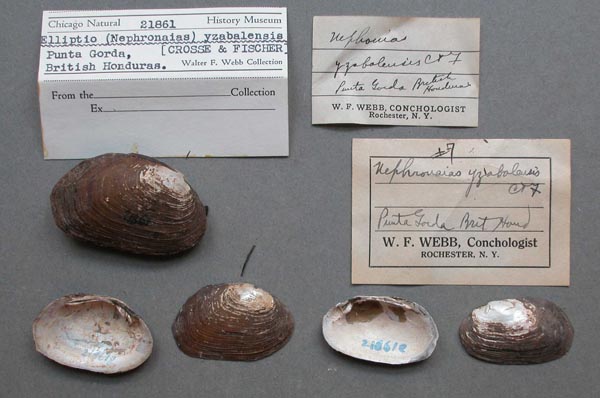 Chicago Natural 21861 History Museum
Elliptio (Nephronaias) yzabalensis
Punta Gorda, [CROSSE & FISCHER]
British Honduras. Walter F. Webb Collection
From the Collection
Ex.
Nephronaias
yzabalensis C & F
Punta Gorda British
Honduras
W. F. WEBB, CONCHOLOGIST
Rochester, N. Y.
±7
Nephronaias yzabalensis
C & F
Punta Gorda Brit Hond
W. F. WEBB, Conchologist
ROCHESTER, N. Y.
21861